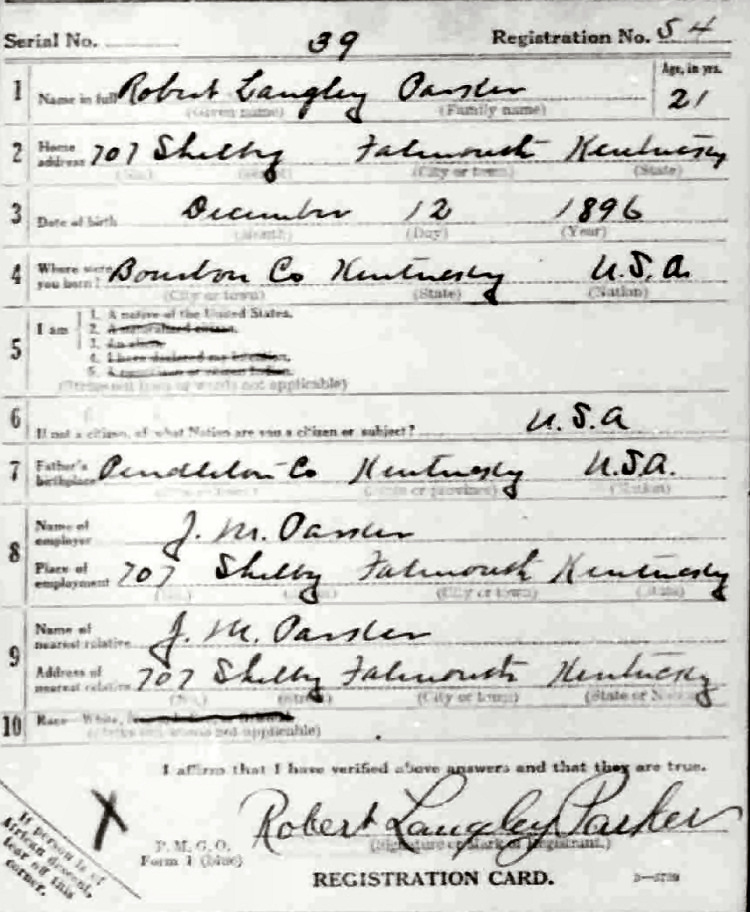 Serial No. 39 Registration No. 54
1 Name in full Robert Langley Parker Age, in yrs. 21
(Given name) (Family name)
2 Home address 707 Shelby Falmouth Kentucky
(No.) (Street) (City or town) (State)
3 Date of birth December 12 1896
(Month) (Day) (Year)
4 Where were you born? Bourbon Co Kentucky U.S.A.
(City or town) (State) (Nation)
5 I am
1. A native of the United States.
2. A naturalized citizen.
3. An alien.
4. I have declared my intention.
5.
(Strike out lines or words not applicable)
6 If not a citizen, of what Nation are you a citizen or subject? U.S.A
7 Father's birthplace Pendleton Co Kentucky U.S.A.
(City or town) (State or province) (Nation)
8 Name of employer J. M. Parker
Place of employment 707 Shelby Falmouth Kentucky
(No.) (Street) (City or town) (State)
9 Name of nearest relative J. M. Parker
Address of nearest relative 707 Shelby Falmouth Kentucky
(No.) (Street) (City or town) (State or Nation)
10 Race—White,
(Strike out words not applicable)
I affirm that I have verified above answers and that they are true.
X Robert Langley Parker
P. M. G. O. (Signature or mark of Registrant.)
Form 1 (blue)
REGISTRATION CARD.
If person is of
African descent,
tear off this
corner.